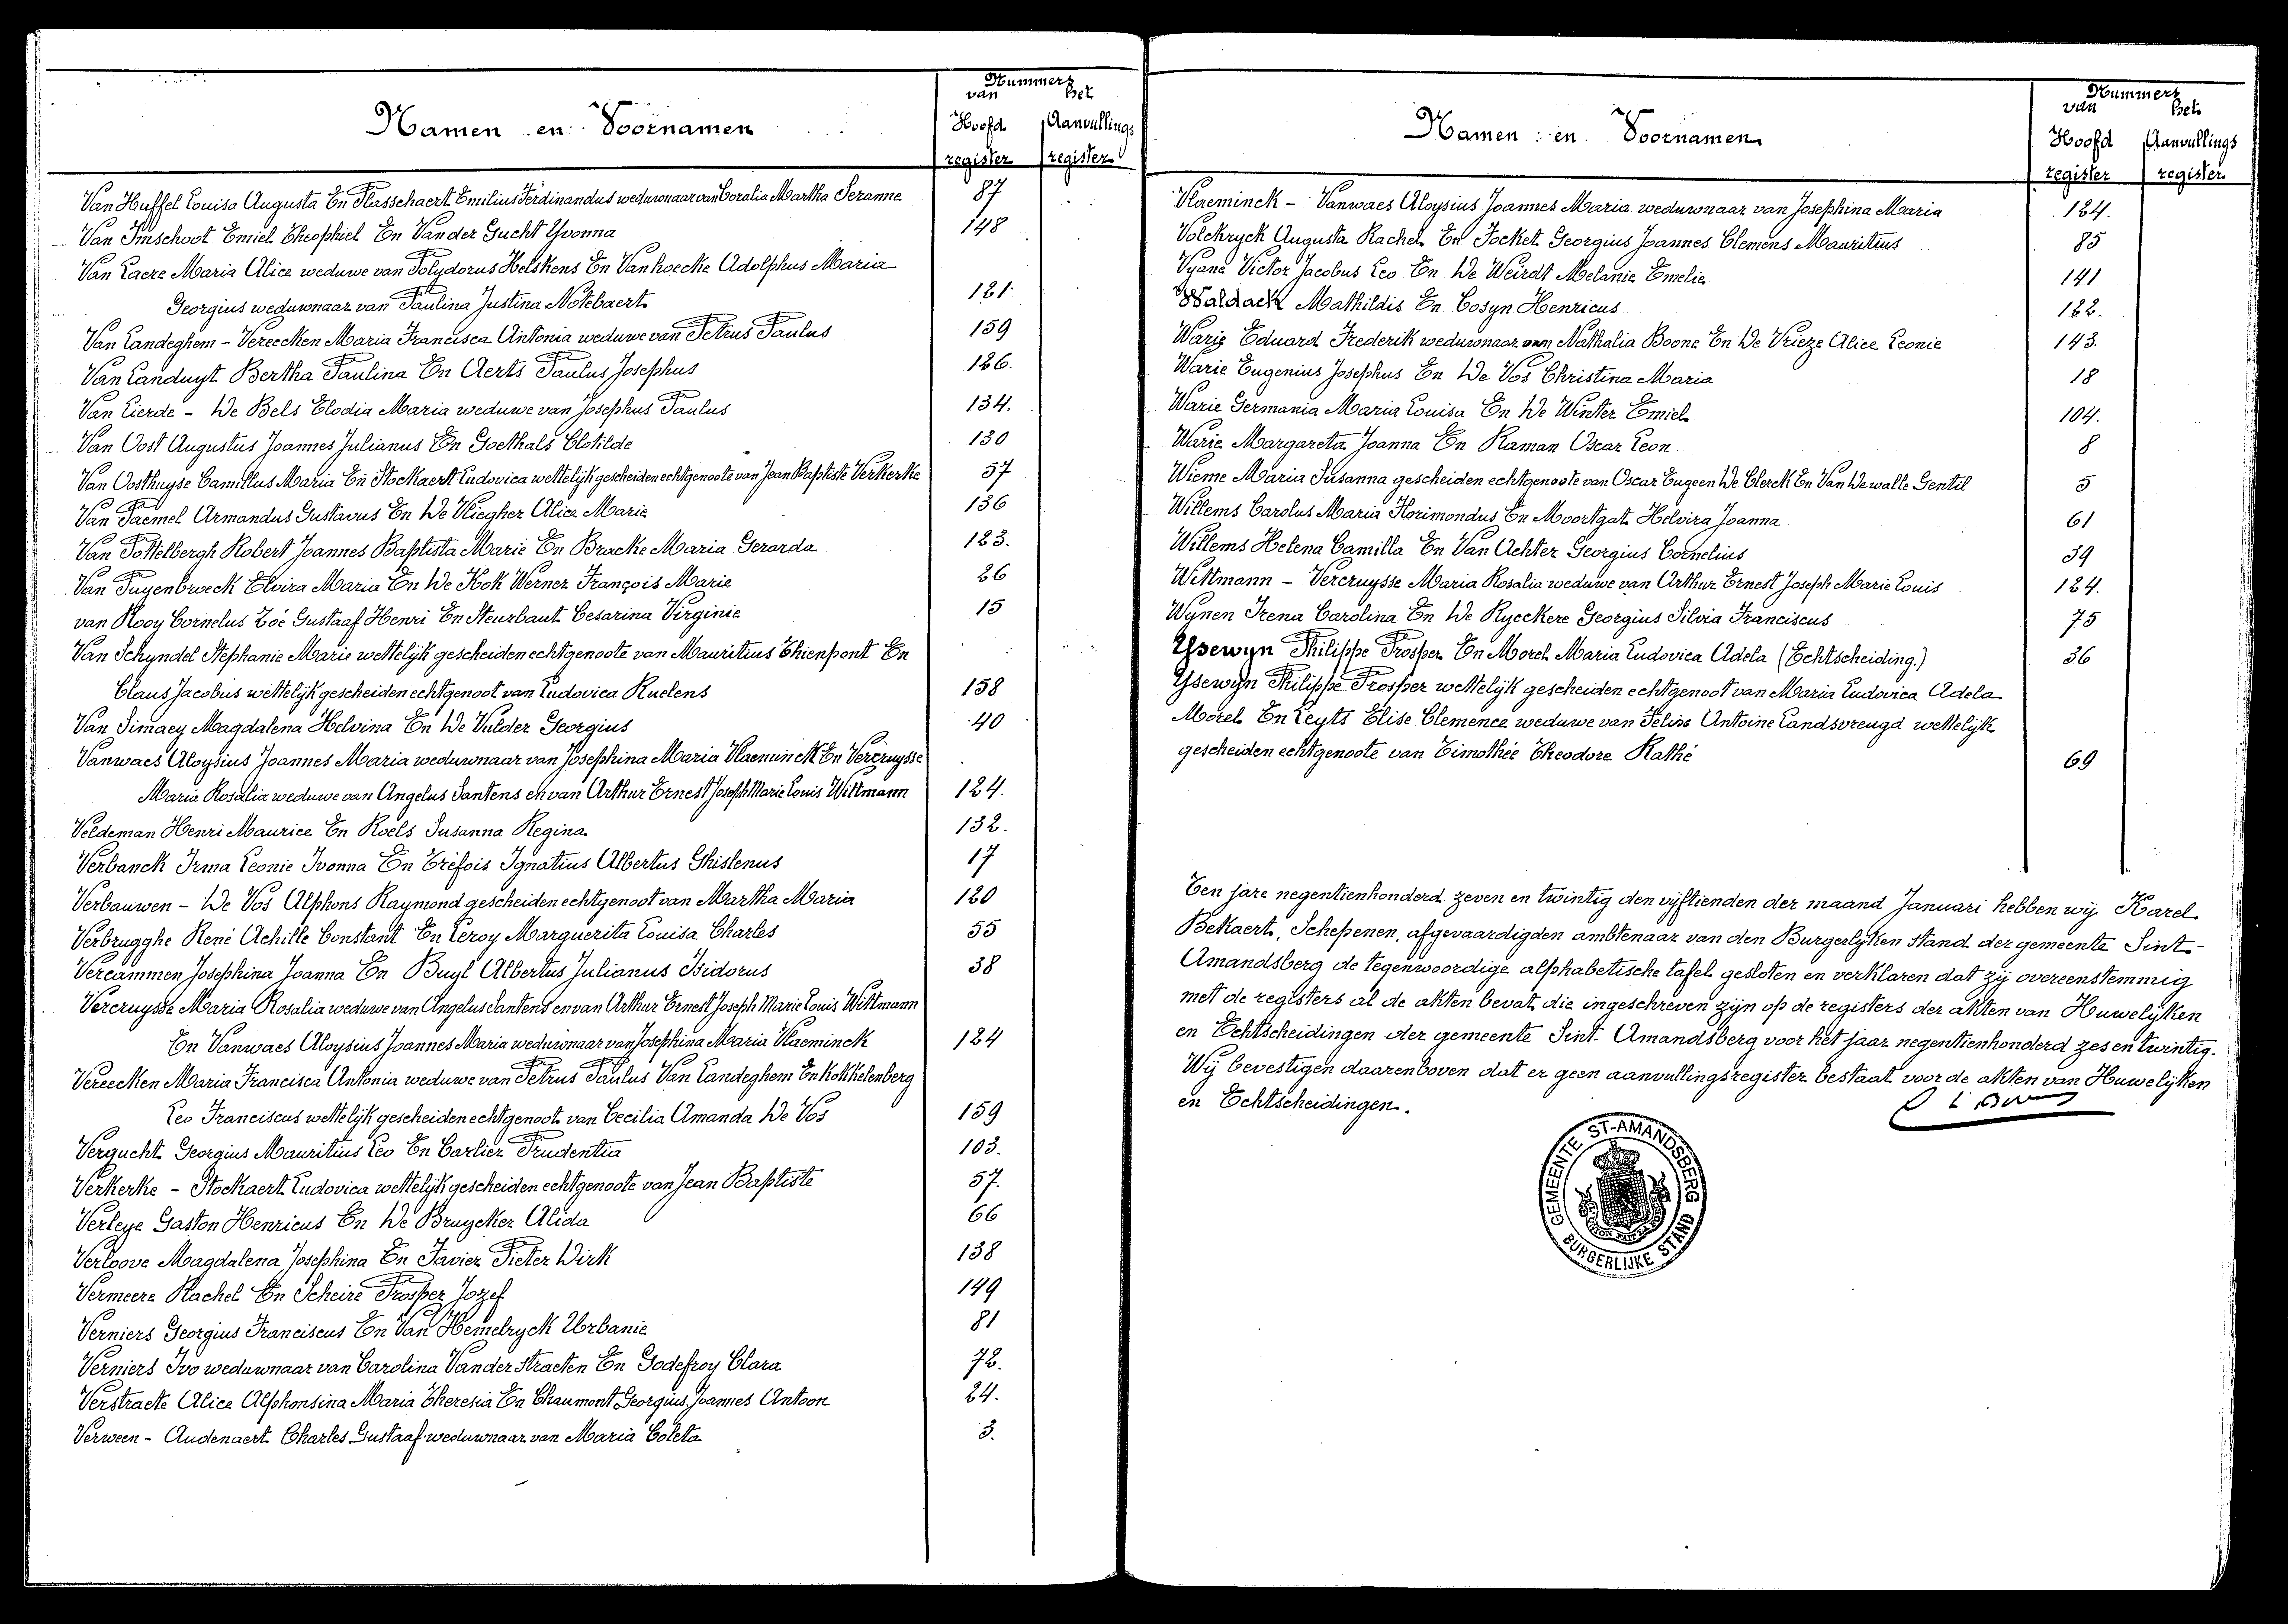 Nummers
van het
Namen en Voornamen
Hoofd Aanvullings
register register
Van Huffel Louisa Augusta En Plasschaert Emilius Ferdinandus weduwnaar van Coralia Martha Seranne 87
Van Imschoot Emiel Theophiel En Vander Gucht Yvonna 148
Van Laere Maria Alice weduwe van Polydorus Helskens En Vanhoecke Adolphus Maria
Georgius weduwnaar van Paulina Justina Notebaert 121
Van Landeghem - Vereecken Maria Francisca Antonia weduwe van Petrus Paulus 159
Van Landuyt Bertha Paulina En Aerts Paulus Josephus 126.
Van Lierde - De Bels Elodia Maria weduwe van Josephus Paulus 134.
Van Oost Augustus Joannes Julianus En Goethals Clotilde 130
Van Oosthuyse Camillus Maria En Stockaert Ludovica wettelijk gescheiden echtgenoote van Jean Baptiste Verkerke 57
Van Paemel Armandus Gustavus En De Vliegher Alice Marie 136
Van Pottelbergh Robert Joannes Baptista Marie En Bracke Maria Gerarda 123.
Van Puyenbroeck Elvira Maria En De Kok Werner François Marie 26
van Rooy Cornelus Zoé Gustaaf Henri En Steurbaut Cesarina Virginie 15
Van Schyndel Stephanie Marie wettelijk gescheiden echtgenoote van Mauritius Thienpont En
Claus Jacobus wettelijk gescheiden echtgenoot van Ludovica Ruelens 158
Van Simaey Magdalena Helvina En De Vulder Georgius 40
Vanwaes Aloysius Joannes Maria weduwnaar van Josephina Maria Vlaeminck En Vercruysse
Maria Rosalia weduwe van Angelus Santens en van Arthur Ernest Joseph Marie Louis Wittmann 124.
Veldeman Henri Maurice En Roels Susanna Regina 132.
Verbanck Irma Leonie Ivonna En Tréfois Ignatius Albertus Ghislenus 17
Verbauwen - De Vos Alphons Raymond gescheiden echtgenoot van Martha Maria 120
Verbrugghe René Achille Constant En Leroy Marguerita Louisa Charles 55
Vercammen Josephina Joanna En Buyl Albertus Julianus Isidorus 38
Vercruysse Maria Rosalia weduwe van Angelus Santens en van Arthur Ernest Joseph Marie Louis Wittmann
En Vanwaes Aloysius Joannes Maria weduwnaar van Josephina Maria Vlaeminck 124
Vereecken Maria Francisca Antonia weduwe van Petrus Paulus Van Landeghem En Kokkelenberg
Leo Franciscus wettelijk gescheiden echtgenoot van Cecilia Amanda De Vos 159
Vergucht Georgius Mauritius Leo En Carlier Prudentia 103.
Verkerke - Stockaert Ludovica wettelijk gescheiden echtgenoote van Jean Baptiste 57.
Verleye Gaston Henricus En De Bruycker Alida 66
Verloove Magdalena Josephina En Favier Pieter Dirk 138
Vermeere Rachel En Scheire Prosper Jozef 149
Verniers Georgius Franciscus En Van Hemelryck Urbanie 81
Verniers Ivo weduwnaar van Carolina Vander straeten En Godefroy Clara 72.
Verstraete Alice Alphonsina Maria Theresia En Chaumont Georgius Joannes Antoon 24.
Verween - Audenaert Charles Gustaaf weduwnaar van Maria Coleta 3.
Nummers
van het
Namen en Voornamen
Hoofd Aanvullings
register register
Vlaeminck - Vanwaes Aloysius Joannes Maria weduwnaar van Josephina Maria 124.
Volckryck Augusta Rachel En Focket Georgius Joannes Clemens Mauritius 85
Vyane Victor Jacobus Leo En De Weirdt Melanie Emelie 141
Waldack Mathildis En Cosyn Henricus 122.
Warie Eduard Frederik weduwnaar van Nathalia Boone En De Vrieze Alice Leonie 143.
Warie Eugenius Josephus En De Vos Christina Maria 18
Warie Germania Maria Louisa En De Winter Emiel 104.
Warie Margareta Joanna En Raman Oscar Leon 8
Wieme Maria Susanna gescheiden echtgenoote van Oscar Eugeen De Clerck En Van Dewalle Gentil 5
Willems Carolus Maria Florimondus En Moortgat Helvira Joanna 61
Willems Helena Camilla En Van Achter Georgius Cornelius 39
Wittmann - Vercruysse Maria Rosalia weduwe van Arthur Ernest Joseph Marie Louis 124.
Wynen Irena Carolina En De Ryeckere Georgius Silvia Franciscus 75
Ysewyn Philippe Prosper En Morel Maria Ludovica Adela (Echtscheiding.) 36
Ysewyn Philippe Prosper wettelijk gescheiden echtgenoot van Maria Ludovica Adela
Morel En Leyts Elise Clemence weduwe van Felix Antoine Landsvreugd wettelijk
gescheiden echtgenoote van Timothée Theodore Rathé 69
Ten jare negentienhonderd zeven en twintig den vijftienden der maand Januari hebben wij Karel
Bekaert, Schepenen, afgevaardigden ambtenaar van den Burgerlyken stand der gemeente Sint-
Amandsberg de tegenwoordige alphabetische tafel gesloten en verklaren dat zij overeenstemmig
met de registers al de akten bevat die ingeschreven zijn op de registers der akten van Huwelyken
en Echtscheidingen der gemeente Sint-Amandsberg voor het jaar negentienhonderd zes en twintig.
Wij bevestigen daarenboven dat er geen aanvullingsregister bestaat voor de akten van Huwelijken
en Echtscheidingen.
GEMEENTE ST-AMANDSBERG
BURGERLIJKE STAND